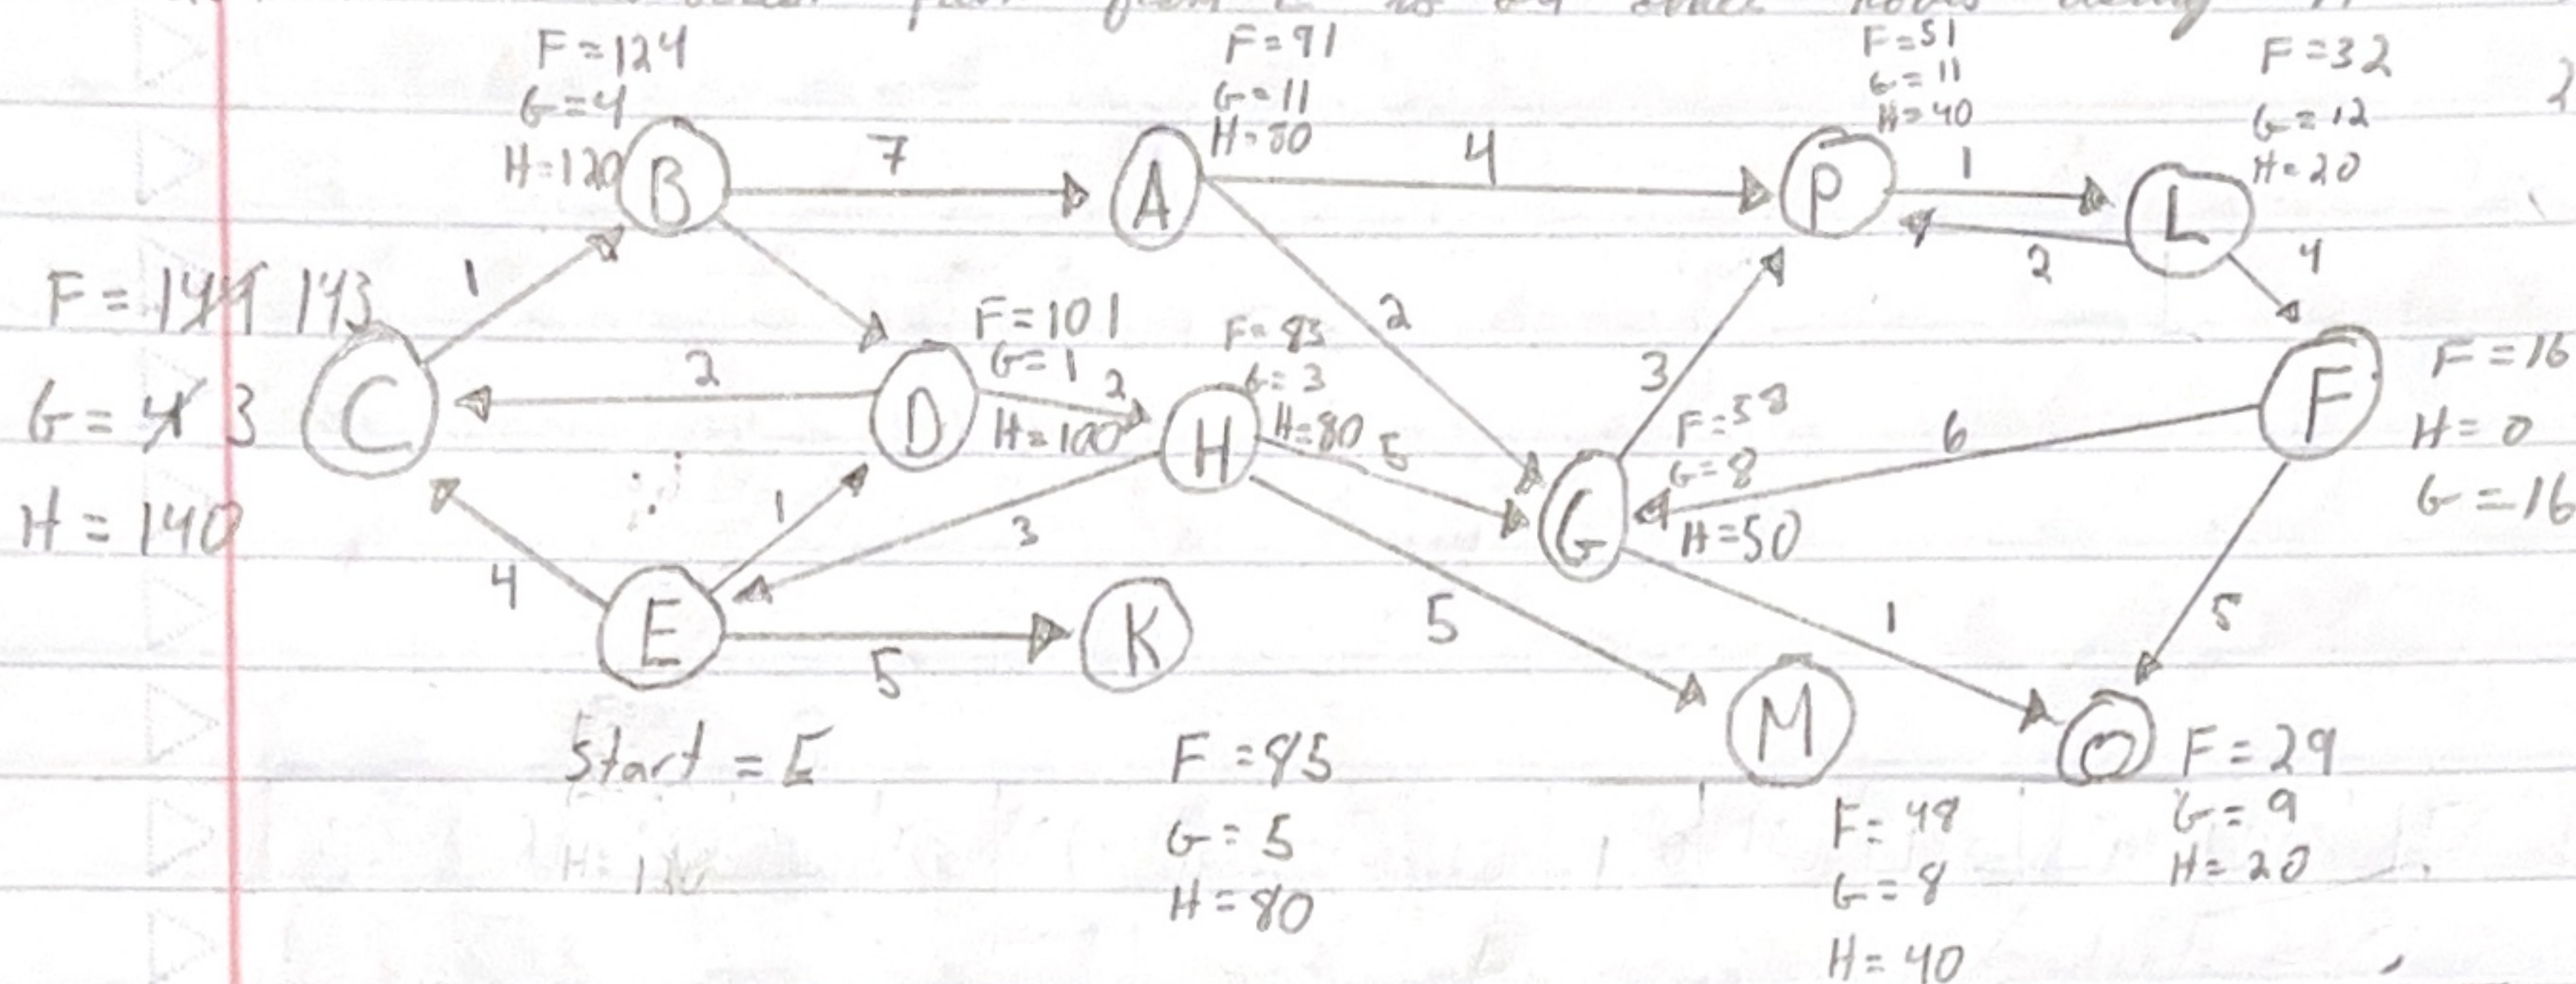 is
F=124
G=4
H=120
B
7
F=91
G=11
H=80
A
4
F=51
G=11
H=40
P
1
F=32
G=12
H=20
L
2
4
F = 143
G = 3
H = 140
C
1
2
F=101
G=1
H=100
D
2
F=83
G=3
H=80
H
5
2
3
F=58
G=8
H=50
G
6
F
F=16
H=0
G=16
4
1
3
E
5
K
5
M
1
O
5
Start = E
F=85
G=5
H=80
F=48
G=8
H=40
F=29
G=9
H=20